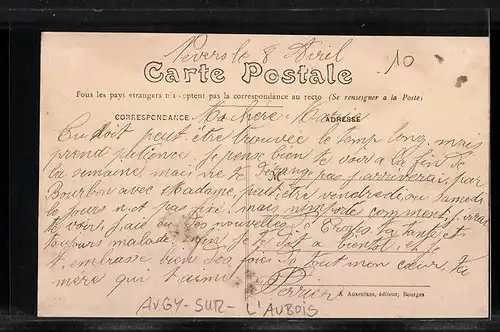 Nevers le 8 Avril
10
Carte Postale
Tous les pays étrangers n'acceptent pas la correspondance au recto (Se renseigner à la Poste)
CORRESPONDANCE ADRESSE
Ma chère
tu doit peut être trouvée le temp long mais
prend patience je pense bien te voir a la fin de
la semaine mais ne te dérange pas j'arriverai par
Bourbon avec Madame peut être vendredi ou samedi
le jours n'est pas fixé mais comment j'irai
te voir j'ai eu des nouvelles ta tante est
toujours malade je te dit a bientôt et
t'embrasse bien des fois de tout mon cœur ta
mère qui t'aime Perrier
A. Auxenfans, éditeur, Bourges
AUGY-SUR-L'AUBOIS